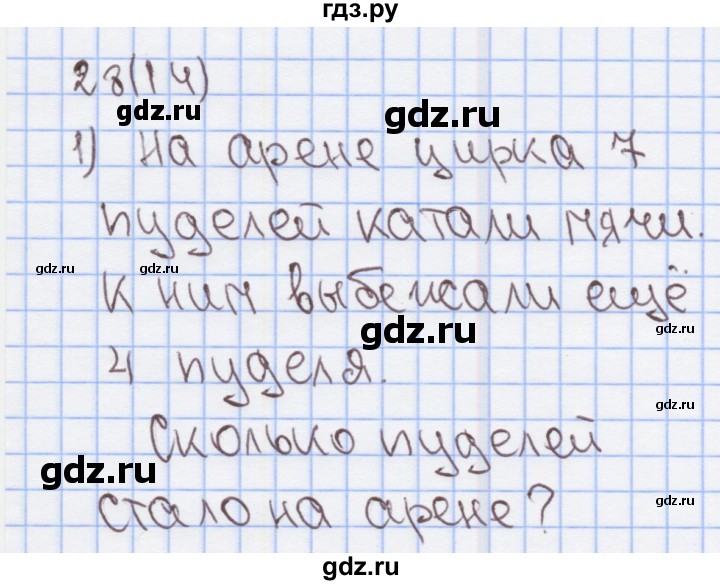 гдз.ру
28(14)
gdz.ru
gdz.ru
1) На арене цирка 7
пуделей катали мячи.
gdz.ru
gdz.ru
К ним выбежали ещё
gdz.ru
gdz.ru
4 пуделя.
gdz.ru
Сколько пуделей
gdz.ru
стало на арене?
gdz.ru
gdz.ru
gdz.ru
gdz.ru